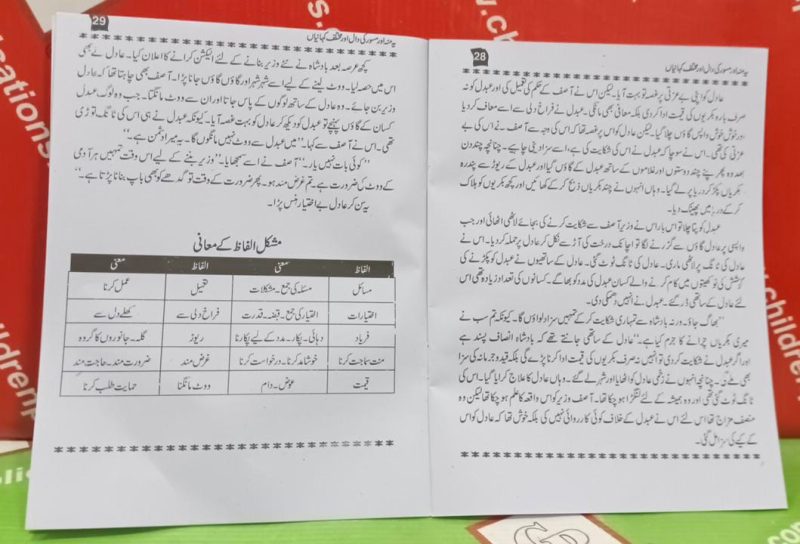 28
یہ منہ اور مسور کی دال اور مختلف کہانیاں
عادل کو اپنی بے عزتی پر غصہ تو بہت آیا۔ لیکن اس نے آصف کے حکم کی تعمیل کی اور عبدل کو نہ
صرف بارہ بکریوں کی قیمت ادا کر دی بلکہ معافی بھی مانگی۔ عبدل نے فراخ دلی سے اسے معاف کر دیا
اور خوش خوش واپس گاؤں چلا گیا۔ لیکن عادل کو اس پر غصہ تھا کہ اس کی وجہ سے آصف نے اس کی بے
عزتی کی تھی۔ اس نے سوچا کہ عبدل نے اس کی شکایت کی ہے، اسے سزا دینی چاہیے۔ چنانچہ چند دن
بعد وہ پھر اپنے چند دوستوں اور غلاموں کے ساتھ عبدل کے گاؤں گیا اور عبدل کے ریوڑ سے پندرہ
بکریاں پکڑ کر دریا پر لے گیا۔ وہاں انہوں نے چند بکریاں ذبح کر کے کھائیں اور کچھ بکریوں کو ہلاک
کر کے دریا میں پھینک دیا۔
عبدل کو پتا چلا تو اس بار اس نے وزیر آصف سے شکایت کرنے کی بجائے لاٹھی اٹھائی اور جب
واپسی پر عادل گاؤں سے گزرنے لگا تو اچانک درخت کی آڑ سے نکل کر عادل پر حملہ کر دیا۔ اس نے
عادل کی ٹانگ پر لاٹھی ماری۔ عادل کی ٹانگ ٹوٹ گئی۔ عادل کے ساتھیوں نے عبدل کو پکڑنے کی
کوشش کی تو کھیتوں میں کام کرنے والے کسان عبدل کی مدد کو بھاگے۔ کسانوں کی تعداد زیادہ تھی اس
لئے عادل کے ساتھی ڈر گئے۔ عبدل نے انہیں دھمکی دی۔
”بھاگ جاؤ۔ ورنہ بادشاہ سے تمہاری شکایت کر کے تمہیں سزا دلواؤں گا۔ کیونکہ تم سب نے
میری بکریاں چرانے کا جرم کیا ہے۔“ عادل کے ساتھی جانتے تھے کہ بادشاہ انصاف پسند ہے
اور اگر عبدل نے شکایت کر دی تو انہیں نہ صرف بکریوں کی قیمت ادا کرنا پڑے گی بلکہ قید و جرمانہ کی سزا
بھی ملے گی۔ چنانچہ انہوں نے زخمی عادل کو اٹھایا اور شہر لے گئے۔ وہاں عادل کا علاج کرایا گیا۔ اس کی
ٹانگ ٹوٹ گئی تھی اور وہ ہمیشہ کے لئے لنگڑا ہو چکا تھا۔ آصف وزیر کو اس واقعہ کا علم ہو چکا تھا لیکن وہ
منصف مزاج تھا اس لئے اس نے عبدل کے خلاف کوئی کارروائی نہیں کی بلکہ خوش تھا کہ عادل کو اس
کے کیے کی سزا مل گئی۔
29
یہ منہ اور مسور کی دال اور مختلف کہانیاں
کچھ عرصہ بعد بادشاہ نے نئے وزیر بنانے کے لئے الیکشن کرانے کا اعلان کیا۔ عادل نے بھی
اس میں حصہ لیا۔ ووٹ لینے کے لیے اسے شہر شہر اور گاؤں گاؤں جانا پڑا۔ آصف بھی چاہتا تھا کہ عادل
وزیر بن جائے۔ وہ عادل کے ساتھ لوگوں کے پاس جاتا اور ان سے ووٹ مانگتا۔ جب وہ لوگ عبدل
کسان کے گاؤں پہنچے تو عبدل کو دیکھ کر عادل کو بہت غصہ آیا۔ کیونکہ عبدل نے ہی اس کی ٹانگ توڑی
تھی۔ اس نے آصف سے کہا۔ ”میں عبدل سے ووٹ نہیں مانگوں گا۔ یہ میرا دشمن ہے۔“
”کوئی بات نہیں یار۔“ آصف نے اسے سمجھایا۔ ”وزیر بننے کے لیے اس وقت تمہیں ہر آدمی
کے ووٹ کی ضرورت ہے۔ تم غرض مند ہو۔ پھر ضرورت کے وقت تو گدھے کو بھی باپ بنانا پڑتا ہے۔“
یہ سن کر عادل بے اختیار ہنس پڑا۔
مشکل الفاظ کے معانی
الفاظ معنی الفاظ معنی
مسائل مسئلہ کی جمع۔ مشکلات تعمیل عمل کرنا
اختیارات اختیار کی جمع۔ قبضہ قدرت فراخ دلی سے کھلے دل سے
فریاد دہائی۔ پکار۔ مدد کے لیے پکارنا ریوڑ گلہ۔ جانوروں کا گروہ
منت سماجت کرنا خوشامد کرنا۔ درخواست کرنا غرض مند ضرورت مند۔ حاجت مند
قیمت عوض۔ دام ووٹ مانگنا حمایت طلب کرنا
www.ch
ications
children
childrenp
lic
com